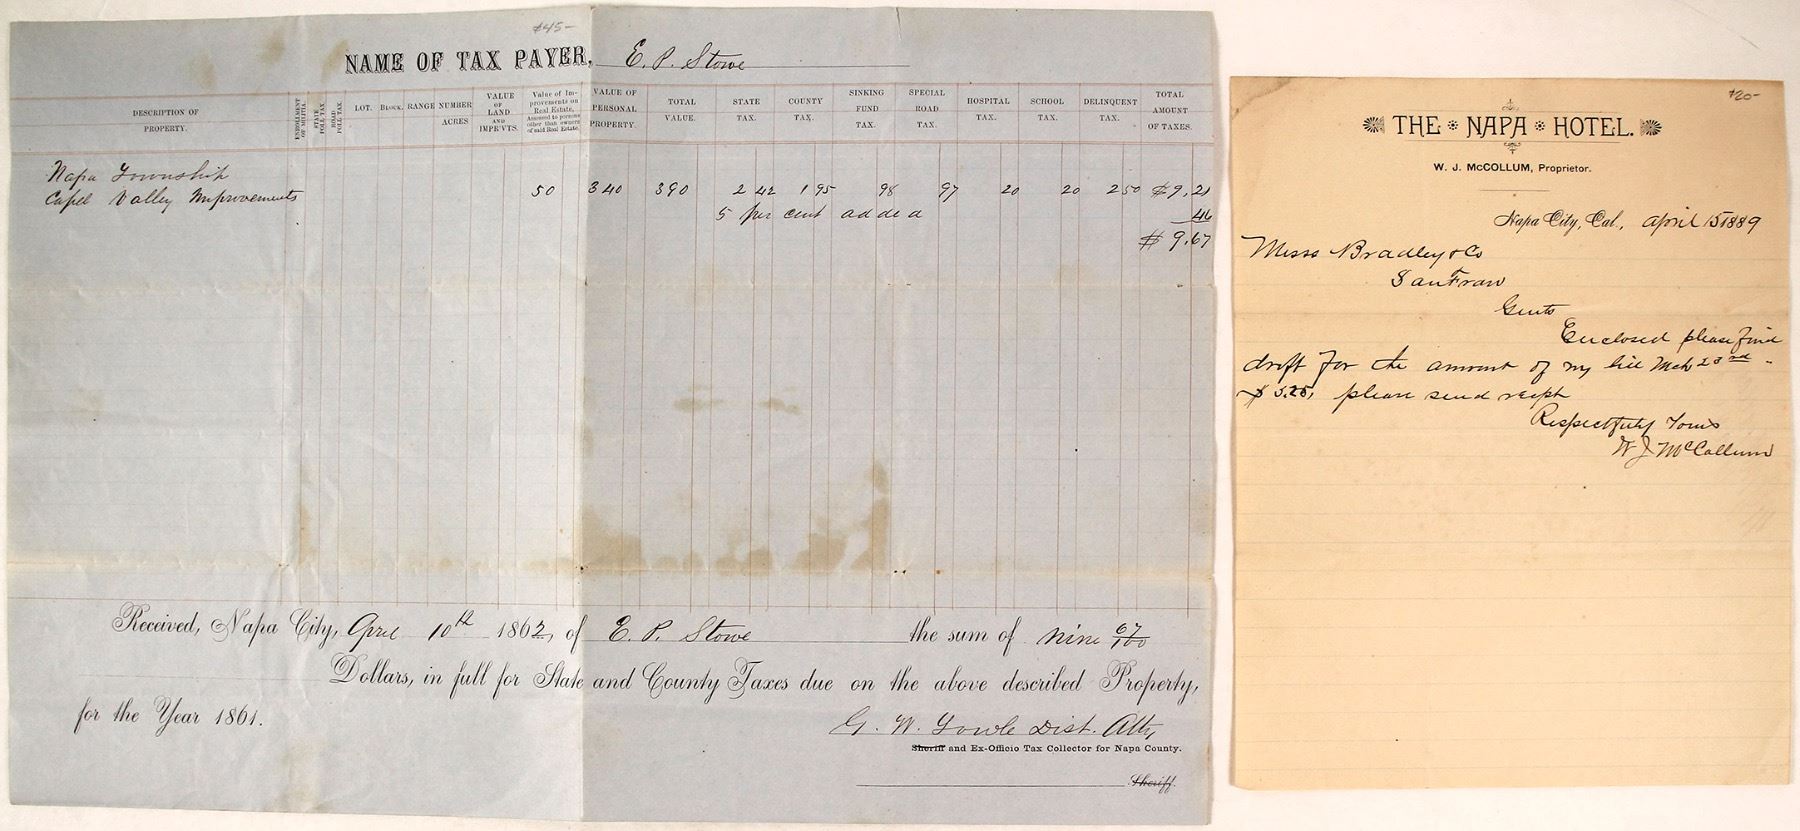 $45-
NAME OF TAX PAYER, E. P. Stowe
DESCRIPTION OF PROPERTY. ENROLLMENT OF MILITIA. STATE POLL TAX ROAD POLL TAX LOT. BLOCK. RANGE NUMBER ACRES. VALUE OF LAND AND IMPR'VTS. Value of Improvements on Real Estate, Assessed to persons other than owners of said Real Estate. VALUE OF PERSONAL PROPERTY. TOTAL VALUE. STATE TAX. COUNTY TAX. SINKING FUND TAX. SPECIAL ROAD TAX. HOSPITAL TAX. SCHOOL TAX. DELINQUENT TAX. TOTAL AMOUNT OF TAXES.
Napa Township
Capel Valley Improvements 50 340 390 2 42 1 95 98 97 20 20 2 50 $9,21
5 per cent added 46
$9.67
Received, Napa City, April 10th 1862, of E. P. Stowe the sum of nine 67/100
Dollars, in full for State and County Taxes due on the above described Property,
for the Year 1861.
G. W. Towle Dist. Atty
Sheriff and Ex-Officio Tax Collector for Napa County.
Sheriff.
$20-
THE NAPA HOTEL.
W. J. McCOLLUM, Proprietor.
Napa City, Cal., April 15 1889
Messs Bradley & Co
San Fran
Gents
Enclosed please find
draft for the amount of my bill Mch 23rd -
$5.25, please send recipt
Respectfully Yours
W J McCollum